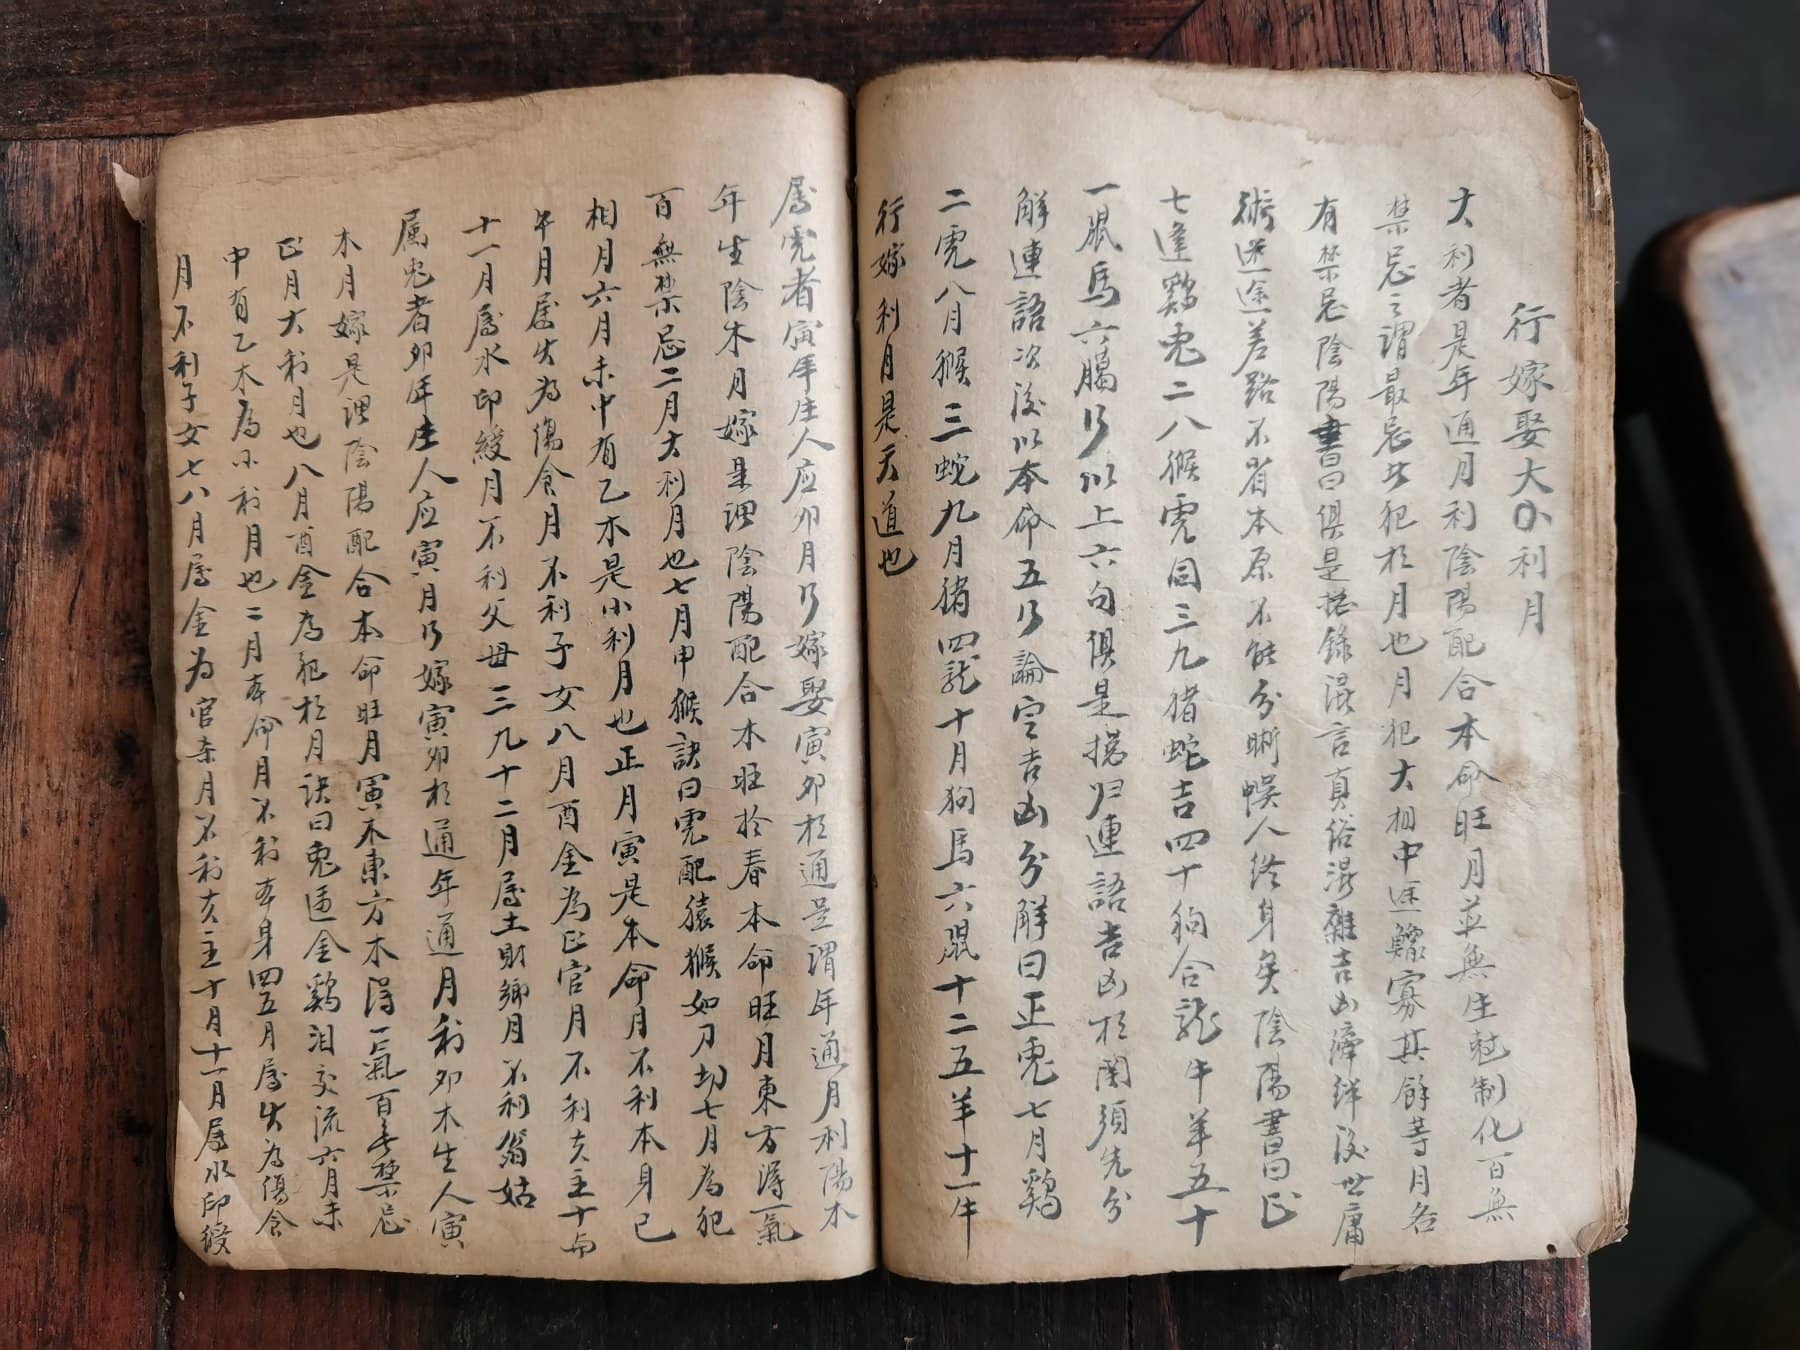 行嫁娶大小利月
大利者是年通月利陰陽配合本命旺月並無生尅制化百無
禁忌之謂最忌者犯於月也月犯大相中途鰥寡其餘等月各
有禁忌陰陽書曰俱是摠錄混言真俗混雜吉凶後世庸
術迷途差路不省本原不能分晰悞人終身矣陰陽書曰正
七逢鷄兎二八猴虎同三九猪蛇吉四十狗合龍牛羊五十
一鼠馬六臈乃以上六句俱是摠归連語吉凶於閑須先分
解連語次後以本命五乃論定吉凶分解曰正兎七月鷄
二虎八月猴三蛇九月猪四龍十月狗馬六鼠十二五羊十一牛
行嫁利月是天道也
属虎者寅年生人应卯月乃嫁娶寅卯於通是谓年通月利陽木
年生陰木月嫁是謂陰陽配合木旺於春本命旺月東方得一氣
百無禁忌二月大利月也七月申猴訣曰虎配猿猴如刀切七月為犯
相月六月未中有乙木是小利月也正月寅是本命月不利本身巳
午月属火為傷食月不利子女八月酉金為正官月不利夫主十
十一月属水印綬月不利父母三九十二月属土財鄉月不利翁姑
属兎者卯年生人应寅月乃嫁寅卯於通年通月利卯木生人寅
木月嫁是謂陰陽配合本命旺月寅木東方木得一氣百無禁忌
正月大利月也八月酉金為犯於月訣曰兎逢金鷄泪交流六月未
中有乙木為小利月也二月本命月不利本身四五月属火為傷食
月不利子女七八月属金为官杀月不利夫主十月十一月属水印綬